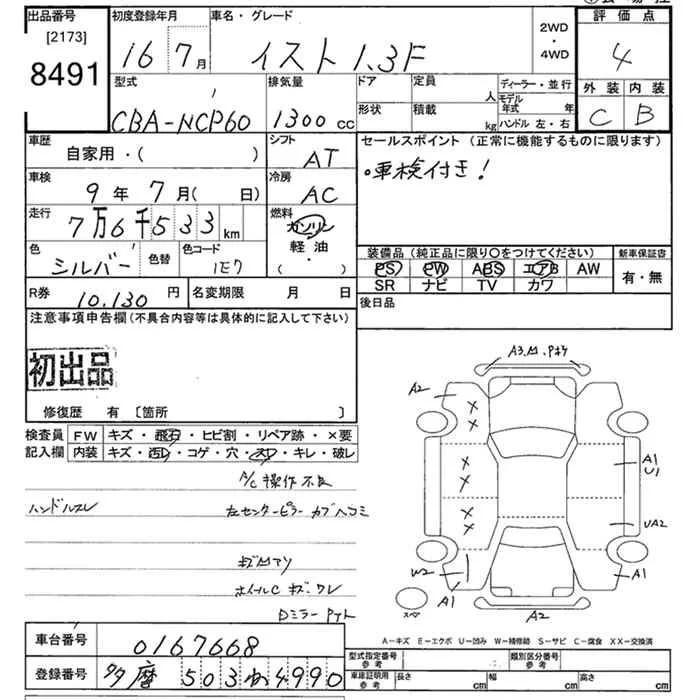 出品番号 初度登録年月 車名・グレード 2WD・4WD 評価点
[2173]
8491 16 7月 イスト 1.3F 4
型式 排気量 ドア 定員 人 ディーラー・並行 外装 内装
CBA-NCP60 1300 cc 形状 積載 kg モデル年式 年 C B
ハンドル 左・右
車歴 シフト セールスポイント (正常に機能するものに限ります)
自家用・( ) AT ・車検付き!
車検 冷房
9年 7月( 日) AC
走行 燃料
7万6千533km ガソリン
色 色替 色コード 軽油 装備品 (純正品に限り〇をつけてください) 新車保証書
シルバー 1E7 ・( ) PS PW ABS エアB AW 有・無
SR ナビ TV カワ
R券 10.130 円 名変期限 月 日 後日品
注意事項申告欄 (不具合内容等は具体的に記入して下さい)
初出品
修復歴 有 〔箇所 〕
検査員 FW キズ・飛石・ヒビ割・リペア跡・×要
記入欄 内装 キズ・凹・コゲ・穴・スレ・キレ・破レ
A/C 操作不良
ハンドルスレ 左センターピラー カブヘコミ
キズ凹アリ
ホイールC キズ・ワレ
Dミラー
A2 A3
A1
U1
UA2
W2
A1 A1
スペア A2
A-キズ E-エクボ U-凹み W-補修跡 S-サビ C-腐食 XX-交換済
車台番号 0167668
型式指定番号 参考 類別区分番号 参考
登録番号 多摩 503 わ 4990
車庫証明用 参考 長さ cm 幅 cm 高さ cm